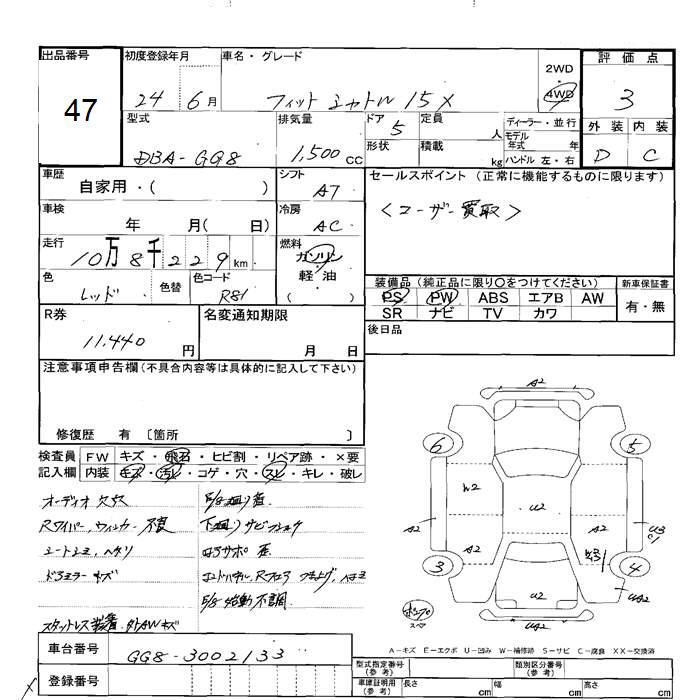 出品番号
47
初度登録年月
24 6月
車名・グレード
フィットシャトル 15X
2WD
・
4WD
評価点
3
外装 内装
D C
型式
DBA-GG8
排気量
1,500cc
ドア
5
形状
定員
人
積載
kg
ディーラー・並行
モデル年式 年
ハンドル 左・右
車歴
自家用・( )
シフト
AT
車検
年 月( 日)
冷房
AC
走行
10万8千229km
燃料
ガソリン
軽油
( )
色
レッド
色替
色コード
R81
セールスポイント(正常に機能するものに限ります)
<ユーザー買取>
装備品(純正品に限り○をつけてください)
PS PW ABS エアB AW
SR ナビ TV カワ
新車保証書
有・無
後日品
R券
11,440円
名変通知期限
月 日
注意事項申告欄(不具合内容等は具体的に記入して下さい)
修復歴 有 〔箇所 〕
検査員記入欄
FW キズ・飛石・ヒビ割・リペア跡・×要
内装 キズ・汚レ・コゲ・穴・スレ・キレ・破レ
オーディオ欠品
Rワイパー、ウィンカー不良
シートスレ、ヘタリ
ドアミラーキズ
スタットレス装着、外AWキズ
下廻りサビ
コアサポ 歪
始動不調
A2
6
5
W2
U2
A2
A2
A2
U3
3
4
U2
UA2
UA2
スペア
A-キズ E-エクボ U-凹み W-補修跡 S-サビ C-腐食 XX-交換済
車台番号
GG8-3002133
登録番号
型式指定番号(参考)
類別区分番号(参考)
車庫証明用(参考)
長さ cm 幅 cm 高さ cm